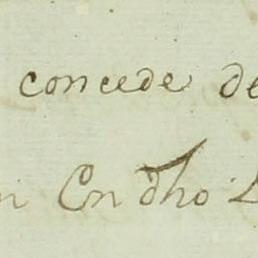 concede de
n En dho